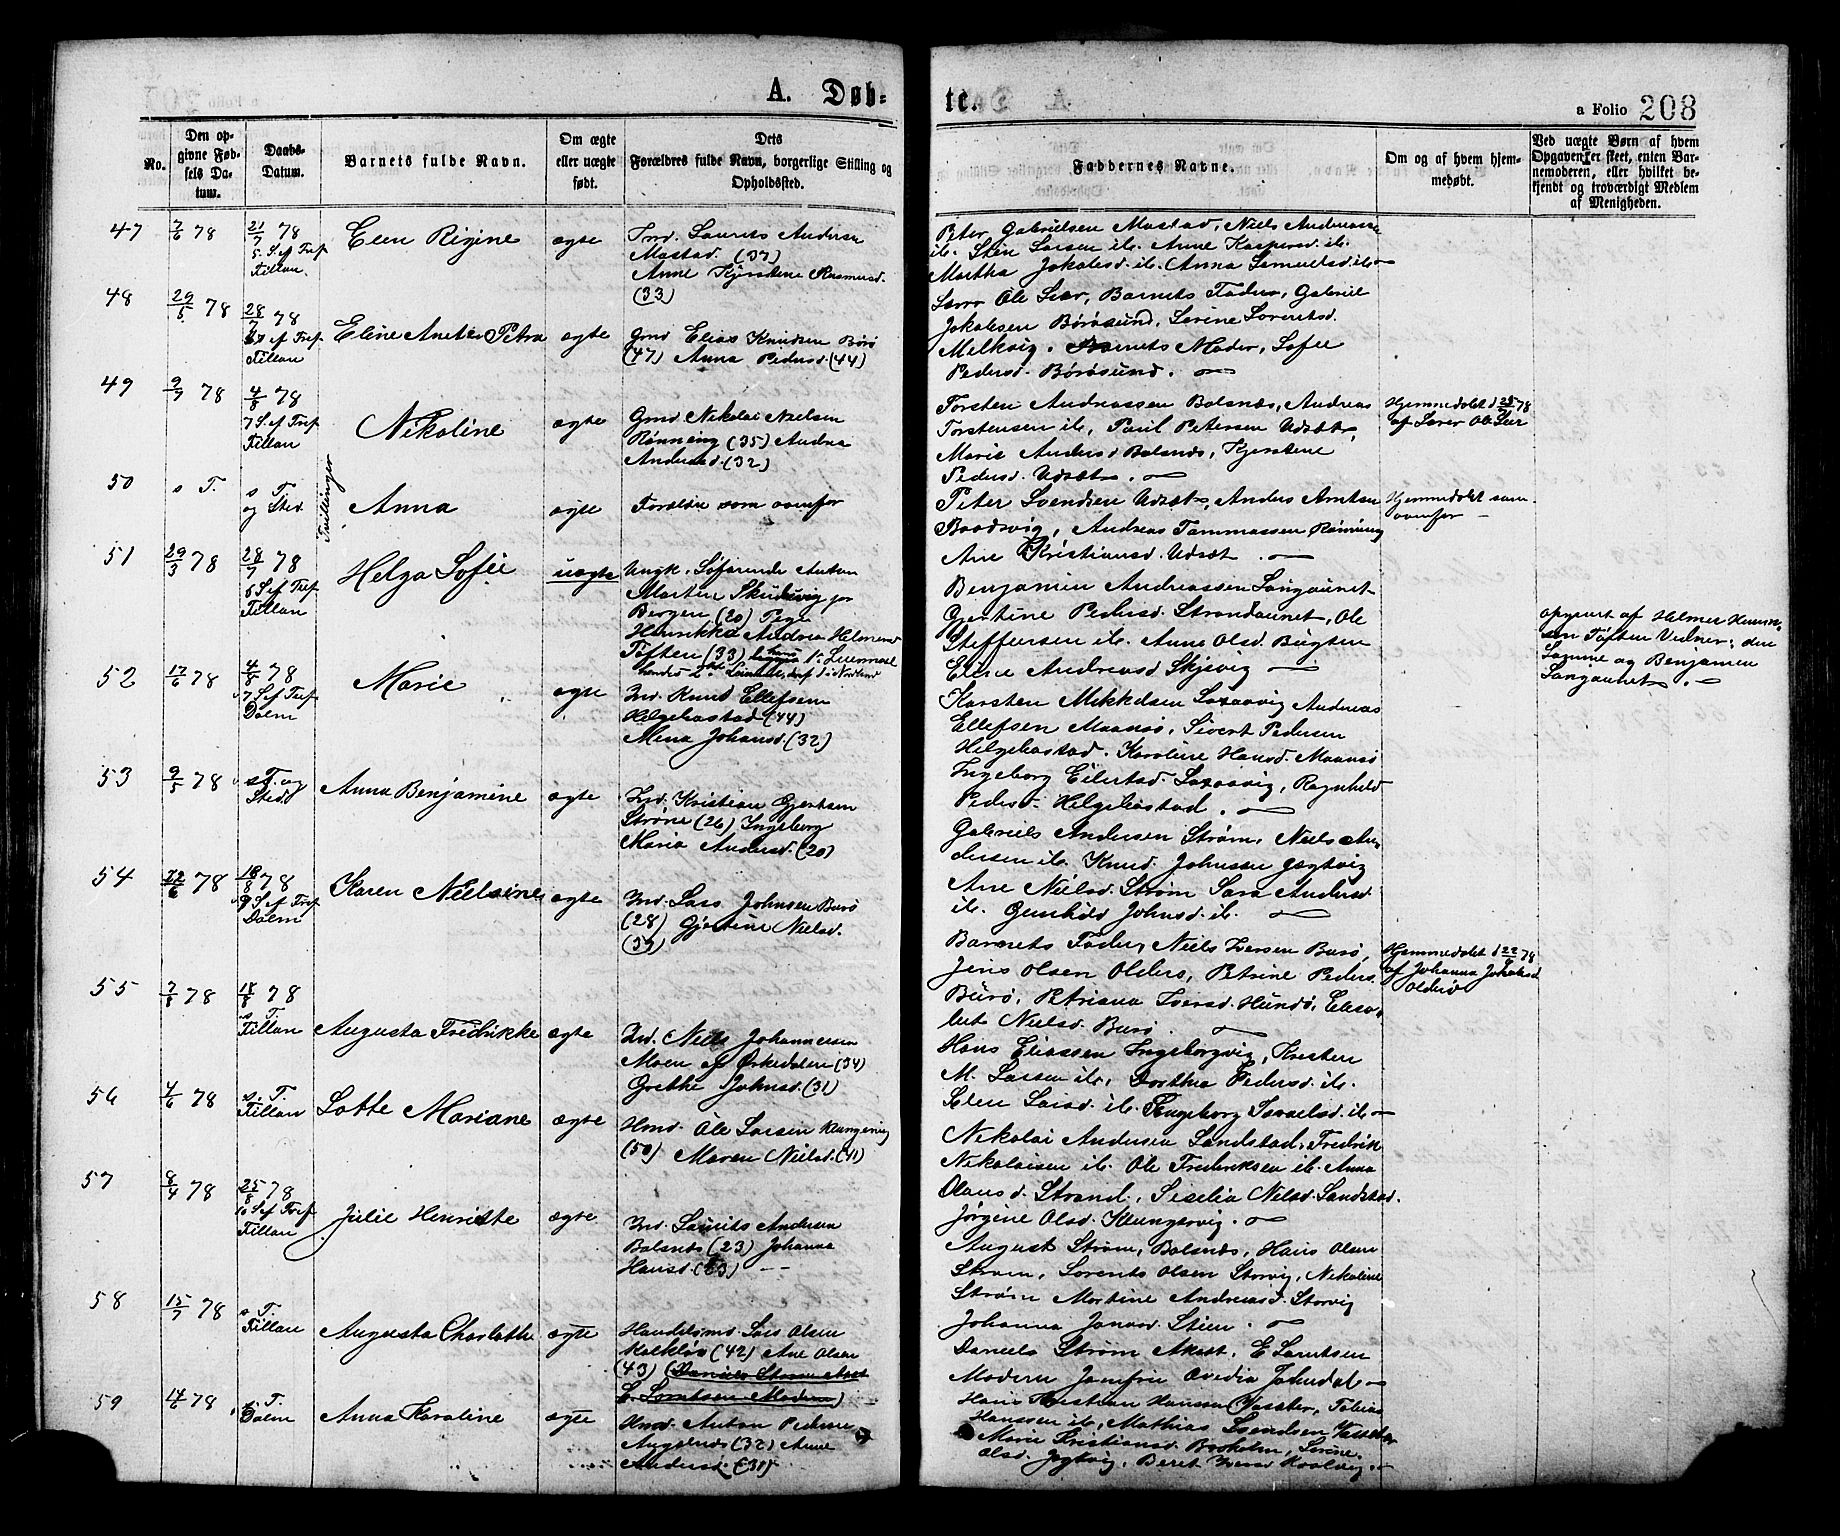 A. Døb-
te.
a Folio 208
No.
Den op-
givne Fød-
sels Da-
tum.
Daabs-
Datum.
Barnets fulde Navn.
Om ægte
eller uægte
født.
Dets
Forældres fulde Navn, borgerlige Stilling og
Opholdssted.
Faddernes Navne.
Om og af hvem hjem-
medøbt.
Ved uægte Børn af hvem
Opgaven er skeet, enten Bar-
nemoderen, eller hvilket be-
kjendt og troværdigt Medlem
af Menigheden.
47
7/6 78
21/7 78
5 S. ef Tref
Fillan.
Elen Rigine
ægte
Ind. Laurits Andersen
Mastad (37)
Anne Kjerstine Rasmusd.
(33)
Peter Gabrielsen Mastad, Niels Andreasen
ib. Sten Larsen ib. Anne Kaspersd. ib.
Martha Jakobsd. ib. Anna Samuelsd. ib.
48
29/5 78
28/7 78
6 S ef Tref.
Fillan
Eline Anette Petra
ægte
Gmd Elias Knudsen Børø
(47) Anna Pedersd. (44)
Lærer Ole Siær, Barnets Fader, Gabriel
Jakobsen Børøsund, Serine Lorentsd.
Melkvig, Barnets Moder, Sofie
Pedersd. Børøsund.
49
9/7 78
4/8 78
7 S. ef Tref
Fillan
Nikoline
ægte
Gmd Nikolai Nielsen
Rønning (35) Andrea
Andersd. (32)
Torsten Andreassen Balsnæs, Andreas
Torstensen ib, Paul Petersen Udsæter,
Marie Andersd Balsnæs, Kjerstine
Pedersd. Udsæter.
Hjemmedøbt d 25/7 78
af Lærer Ole Siær
50
s T.
s T.
og Sted
Tvillinger
Anna
ægte
Forældre som ovenfor
Peter Svendsen Udsæt, Anders Arntsen
Baadsvig, Andreas Tommassen Rønning
Ane Kristiansd. Udsæt.
Hjemmedøbt som
ovenfor
51
29/3 78
28/7 78
6 S ef Tref
Fillan
Helga Sofie
uægte
Ungk. Søfarende Anton
Martin Skudsvig pr
Bergen (20) Pige
Henrikka Andrea Helmersd
Toften (33)
Benjamin Andreassen Langaunet
Gjertine Pedersd. Strandaunet, Ole
Steffensen ib. Anne Olsd. Bugten
Elen Andreasd Skjævig
opgivet af Helmer Henrik-
sen Toften Vedner; den
Samme og Benjamin
Langaunet.
52
17/6 78
4/8 78
7 S. ef Tref
Dolm
Marie
ægte
Ind. Knud Ellefsen
Helgebostad (44)
Mena Johansd. (32)
Karsten Mikkelsen Laxaavig Andreas
Ellefsen Maansø, Sivert Pedersen
Helgebostad. Karoline Hansd. Maansø
Ingeborg Eilertsd. Laxaavig, Ragnhild
Pedersd. Helgebostad.
53
9/5 78
s T. og
Sted
Anna Benjamine
ægte
Ind. Kristian Gjertsen
Strøm (26) Ingeborg
Maria Andersd. (20)
Gabriels Andersen Strøm, Niels An-
dersen ib. Knud Johnsen Jægtvig
Ane Nielsd. Strøm Sara Andersd
ib. Gunhild Johnsd. ib.
54
22/6 78
18/8 78
9 S. ef Tref
Dolm
Karen Nielsine
ægte
Ind. Lars Johnsen Burø
(28) Gjertine Nielsd.
(37)
Barnets Fader, Niels Iversen Burø,
Jens Olsen Olderø, Petrine Peders.
Burø, Petriana Iversd. Hundø, Elisa-
bet Nielsd. Burø.
Hjemmedøbt d 22/6 78
af Johanna Jakobsd
Olderø
55
7/8 78
18/8 78
s T.
Fillan
Augusta Fredrikke
ægte
Ind. Niels Johannessen
Moen af Ørkedalen (34)
Grethe Johnsd. (31)
Hans Eliassen Ingeborgvig, Kristen
M. Larsen ib, Dorthea Pedersd. ib.
Elen Larsd. ib. Ingeborg Israelsd. ib
56
4/6 78
s. T.
Fillan
Lotte Mariane
ægte
Hmd. Ole Larsen Klungervig
(50) Maren Nielsd. (41)
Nikolai Andersen Landstad, Fredrik
Nikolaisen ib. Ole Fredriksen ib. Anna
Olausd. Strand, Sisilia Nielsd. Sandstad.
Jørgine Olsd. Klungervig.
57
8/4 78
25/8 78
10 S. ef Tref
Fillan
Julie Henriette
ægte
Ind. Laurits Andersen
Balsnæs (23) Johanna
Hansd. (23)
August Strøm, Balsnæs, Hans Olsen
Strøm, Lorents Olsen Storvig, Nikoline
Strøm Martine Andreasd. Storvig
Johanna Jansd. Stien.
58
15/7 78
s T.
Fillan
Augusta Charlotthe
ægte
Handelsmd. Lars Olsen
Kalkløv (42) Ane Olsen
(43) (Daniels Strøm Akset
E. Lorntsen Modern)
Daniels Strøm Akset, E Lorntsen
Modern Jomfru Ovedia Johndal
59
14/6 78
s. T.
Dolm
Anna Karoline
ægte
Hmd. Anton Pedersen
Ansnæs (32) Anne
Andersd. (31)
Hans Kristian Hanssen Vasæter, Tobias
Hanssen ib, Mathias Svendsen Vasæter
Marie Kristiansd. Badholm, Serine
Olsd. Jægtvig, Beret Iversd Kvalvig.